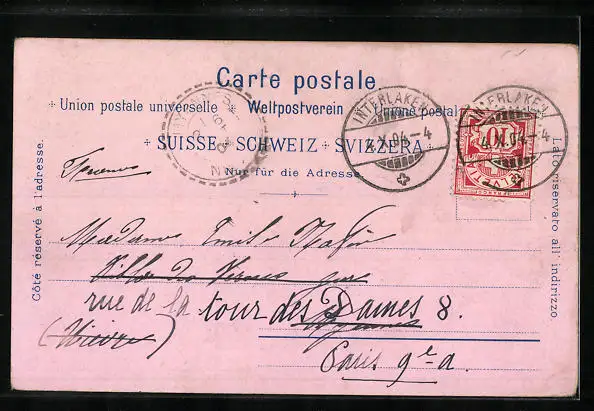 Carte postale
Union postale universelle Weltpostverein Unione postal
SUISSE SCHWEIZ SVIZZERA
Nur für die Adresse
Côté réservé à l'adresse.
Lato riservato all' indirizzo.
INTERLAKEN
4.X.04-4
INTERLAKEN
4.X.04-4
10
Madame Emile
Villa
rue de la tour des Dames 8.
(Nièvre)
Paris 9e a.